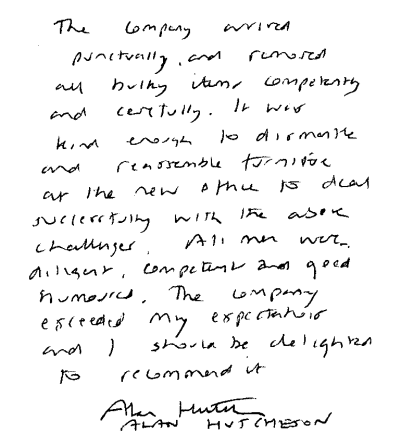 The company arrived
punctually, and removed
all bulky items competently
and carefully. It was
kind enough to dismantle
and reassemble furniture
at the new office to deal
successfully with the above
challenges. All men were
diligent, competent and good
humoured. The company
exceeded my expectations
and I should be delighted
to recommend it
Alan Hutch
ALAN HUTCHESON